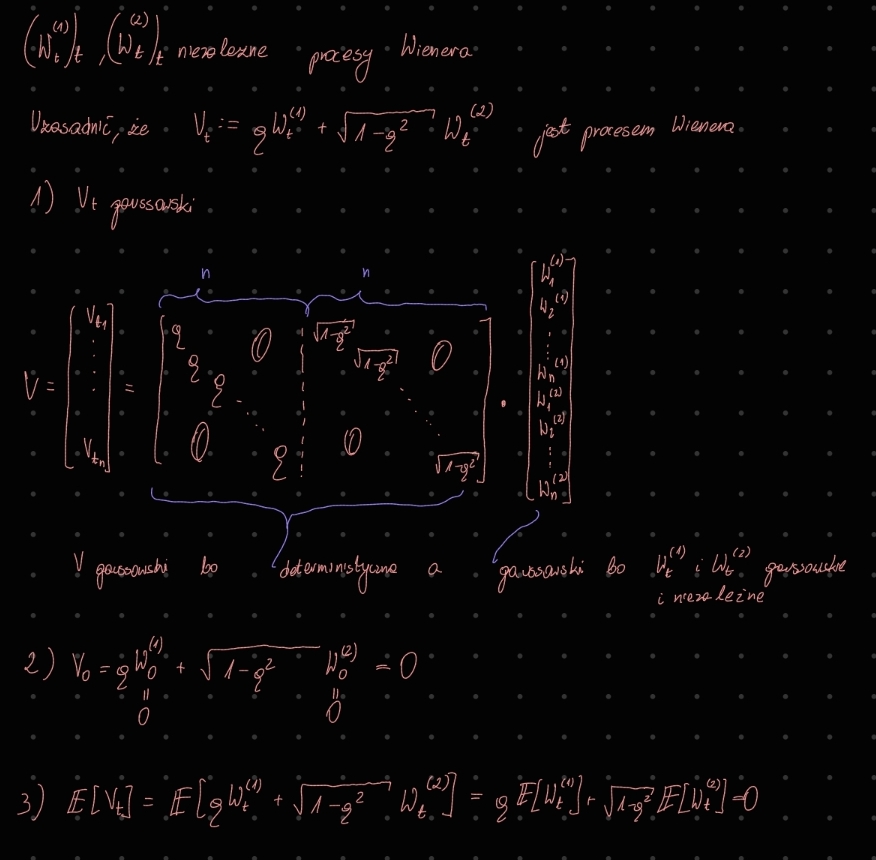 (W_t^{(1)})_t , (W_t^{(2)})_t niezależne procesy Wienera
Uzasadnić, że V_t := ϱ W_t^{(1)} + √(1-ϱ²) W_t^{(2)} jest procesem Wienera
1) V_t gaussowski
n n
V = [V_{t_1} ⋮ V_{t_n}] = [ϱ ϱ ϱ ⋱ ϱ 0 0 ¦ √(1-ϱ²) √(1-ϱ²) ⋱ √(1-ϱ²) 0 0] · [W_1^{(1)} W_2^{(1)} ⋮ W_n^{(1)} W_1^{(2)} W_2^{(2)} ⋮ W_n^{(2)}]
V gaussowski bo deterministyczna a gaussowski bo W_t^{(1)} i W_t^{(2)} gaussowskie
i niezależne
2) V_0 = ϱ W_0^{(1)} + √(1-ϱ²) W_0^{(2)} = 0
= =
0 0
3) 𝔼[V_t] = 𝔼[ϱ W_t^{(1)} + √(1-ϱ²) W_t^{(2)}] = ϱ 𝔼[W_t^{(1)}] + √(1-ϱ²) 𝔼[W_t^{(2)}] = 0